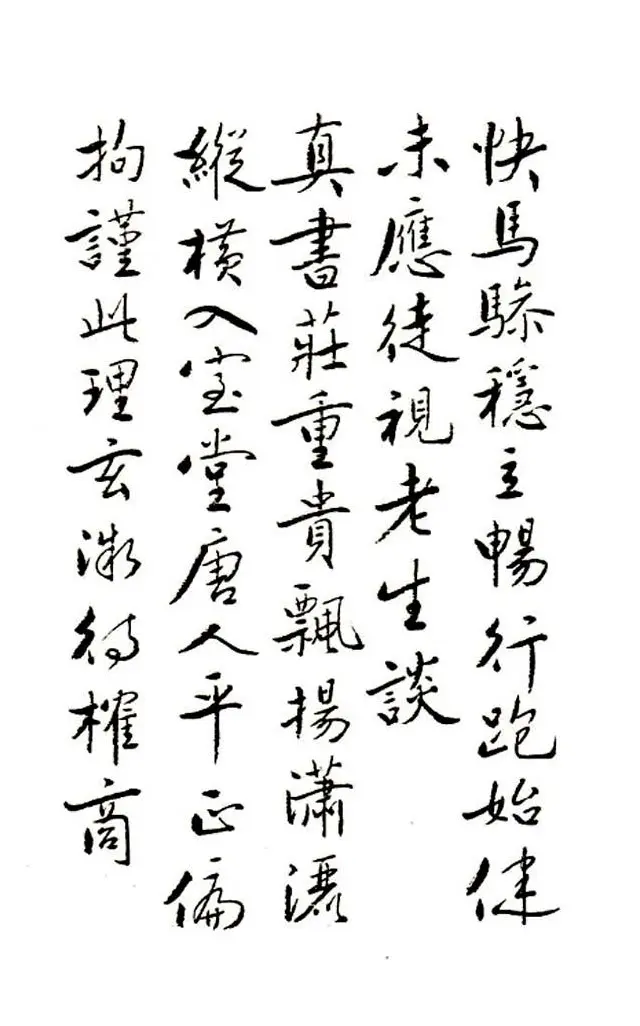 快馬驂穩立暢行跑始健
未應徒視老生談
真書莊重貴飄揚瀟灑
縱橫入室堂唐人平正偏
拘謹此理玄微待榷商